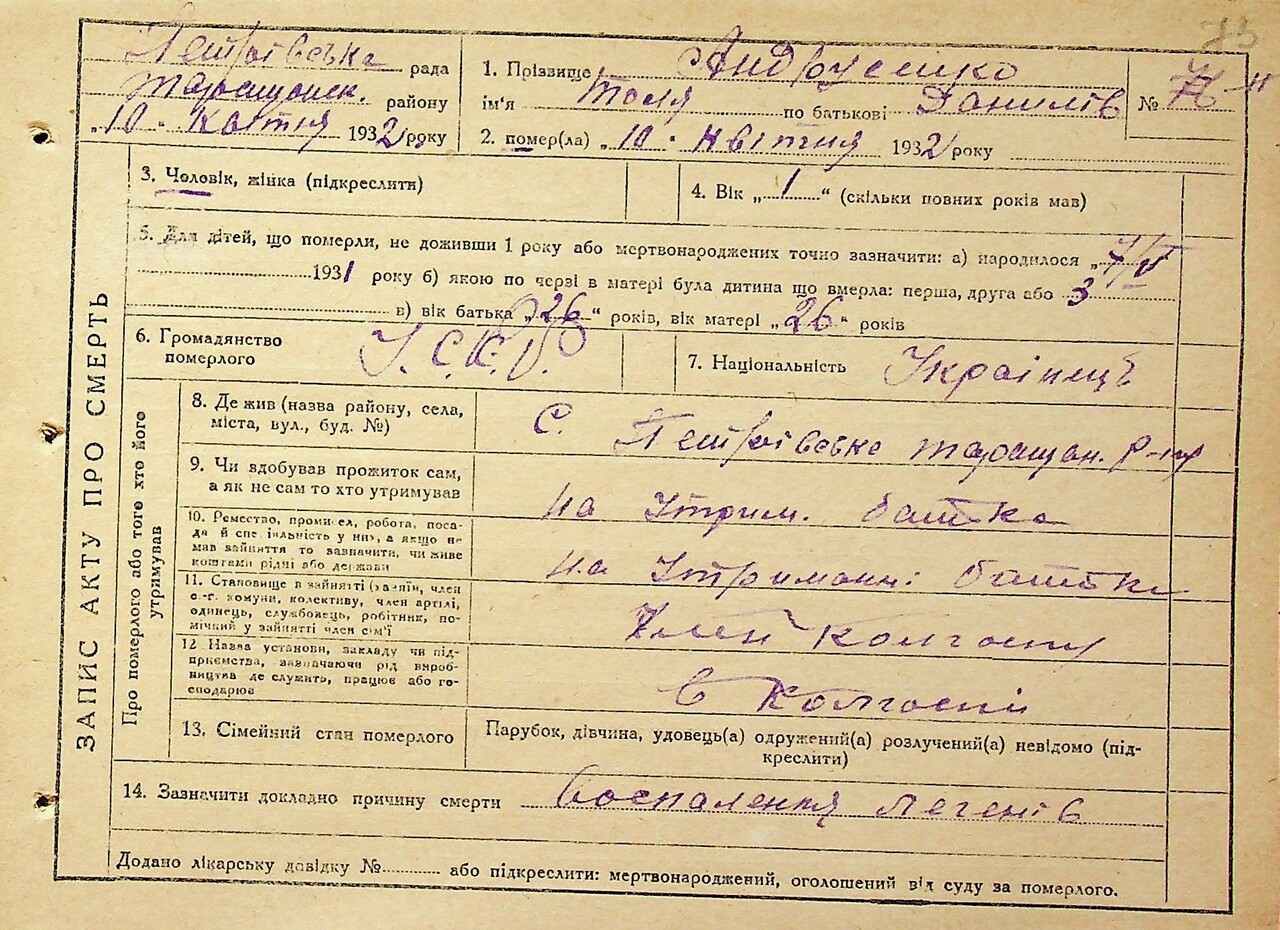 75
Петрівська рада
Таращанск. району
„10“ квітня 1932 року
1. Прізвище Андрусенко
ім'я Толя по батькові Данилів
№
2. помер(ла) „10“ квітня 1932 року
3. Чоловік, жінка (підкреслити)
4. Вік „1“ (скільки повних років мав)
5. Для дітей, що померли, не доживши 1 року або мертвонароджених точно зазначити: а) народилося „7/V
1931 року б) якою по черзі в матері була дитина що вмерла: перша, друга або 3
в) вік батька „26“ років, вік матері „26“ років
6. Громадянство
померлого
У.С.Р.Р.
7. Національність Українець
ЗАПИС АКТУ ПРО СМЕРТЬ
Про померлого або того хто його
утримував
8. Де жив (назва району, села,
міста, вул., буд. №)
С. Петрівське таращан. р-ну
9. Чи здобував прожиток сам,
а як не сам то хто утримував
на утрим. батька
10. Ремество, промисел, робота, поса-
да й спеціяльність у них, а якщо не
мав зайняття то зазначити, чи живе
коштами рідні або держави
на утриманні батька
11. Становище в зайнятті (хазяїн, член
с.-г. комуни, колективу, член артілі,
одинець, службовець, робітник, по-
мічний у зайнятті член сім'ї
Член колгоспу
12 Назва установи, закладу чи під-
приємства, зазначаючи рід вироб-
ництва де служить, працює або го-
сподарює
в колгоспі
13. Сімейний стан померлого
Парубок, дівчина, удовець(а) одружений(а) розлучений(а) невідомо (під-
креслити)
14. Зазначити докладно причину смерти Воспалення легенів
Додано лікарську довідку № або підкреслити: мертвонароджений, оголошений від суду за померлого.